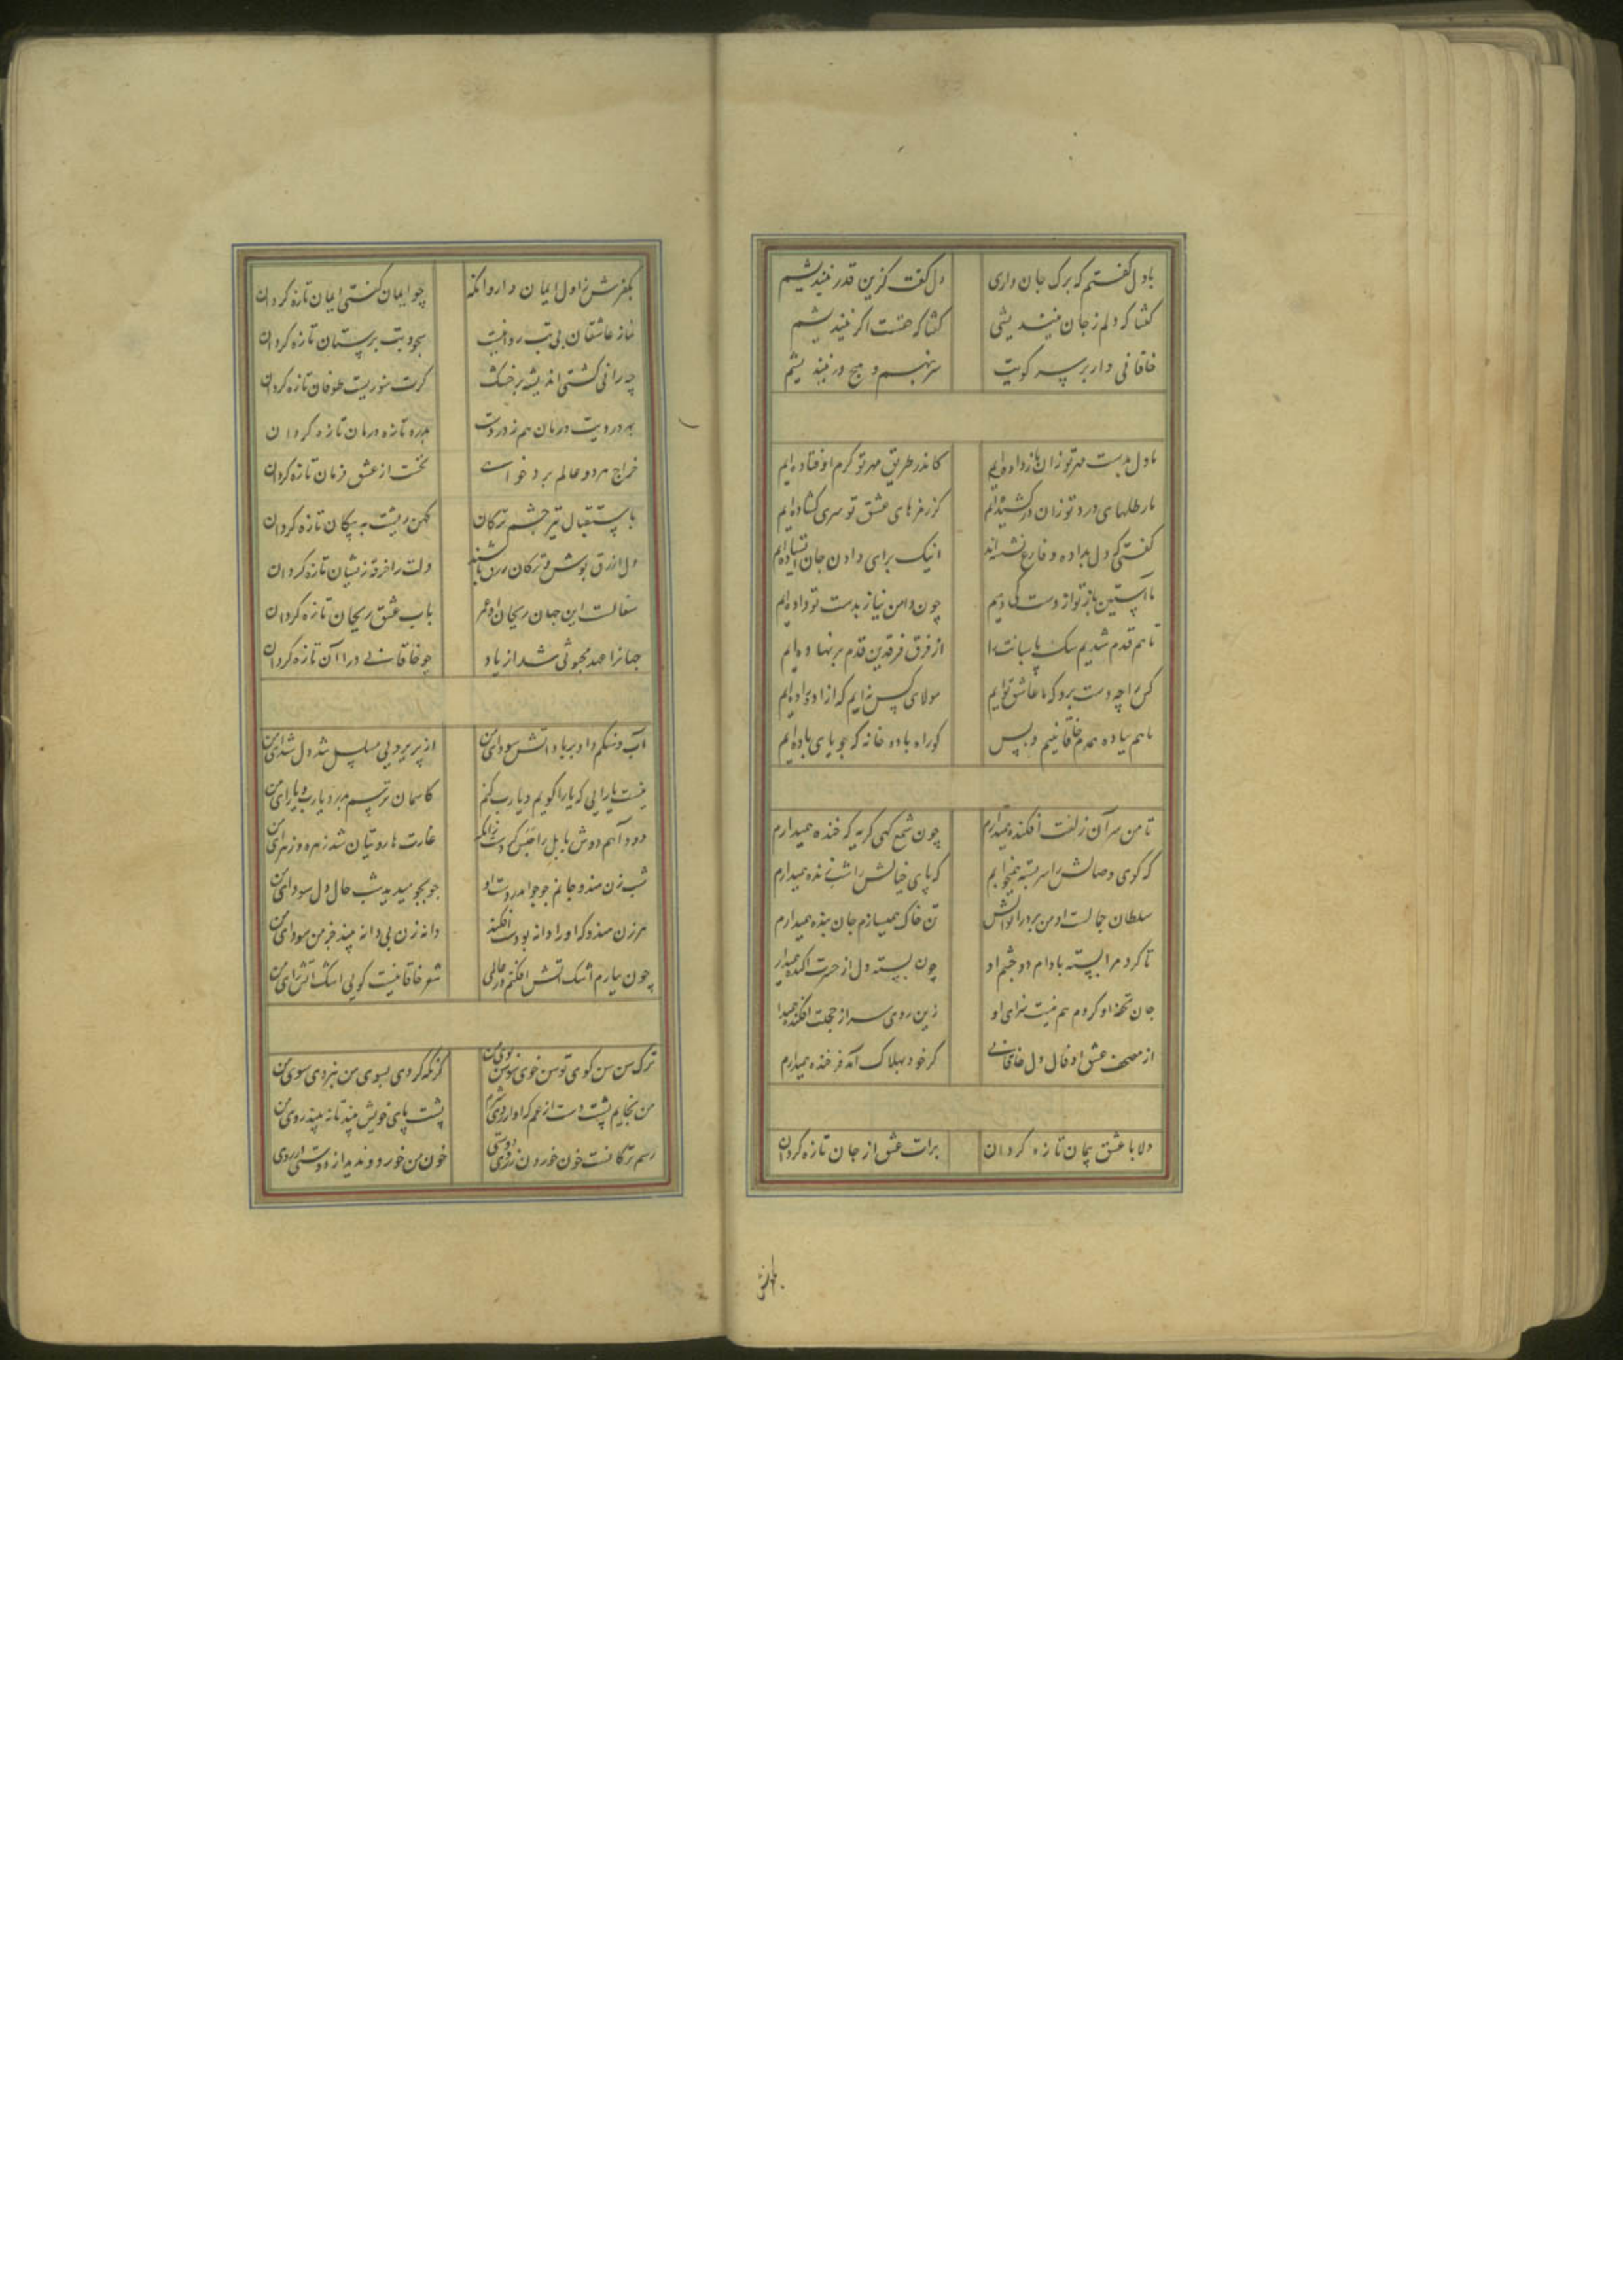 با دل گفتم که برک جان داری دل گفت کزین قدر نیندیشم
گفتا که دلم ز جان نیندیشی گفتا که حقست اکر نیندیشم
خاقانی وار بر سر کویت سر بنهم و هیچ در نیندیشم
ما دل بدست مهر تو زان باز داده‌ایم کاندر طریق مهر تو کرم اوفتاده‌ایم
ما رطلهای درد تو زان در کشیده‌ایم کز رمزهای عشق تو سری کشاده‌ایم
کفتی که دل بداده و فارغ نشسته‌اند اینک برای دادن جان ایستاده‌ایم
ما آستین ناز تو از دست کی دهیم چون دامن نیاز بدست تو داده‌ایم
تا هم قدم شدیم سک پاسبانت را از فرق فرقدین قدم بر نهاده‌ایم
کس را چه دست بر و که ما عاشق توایم مولای کس نه‌ایم که آزاد زاده‌ایم
ما هم پیاده همدم خاقانییم و بس کو راه باده خانه که جویای باده‌ایم
تا من سر آن زلفت افکنده همیدارم چون شمع کهی کریه که خنده همیدارم
که کوی وصالش را سر بسته همیجوایم که پای خیالش را شب زنده همیدارم
سلطان جمالست او من بر در ایوانش تن خاک همیسازم جان بنده همیدارم
تا کرد مرا بسته بادام دو چشم او چون پسته دل از حسرت آکنده همیدار
جان تحفه او کردم هم نیست سزای او زین روی سر از خجلت افکنده همیدا
از مصحف عشق او فال دل خاقانی کر خود بهلاک آمد فرخنده همیدارم
دلا با عشق پیمان تازه کردان برات عشق از جان تازه کردان
بکفرش ز اول ایمان دار و انکه چو ایمان کفتی ایمان تازه کردان
نماز عاشقان بی بت روا نیست سجود بت پرستان تازه کردان
چه رانی کشتی اندیشه بر خشک کرت تنوریست طوفان تازه کردان
چه دردیت درمان هم ز دردست بدرد تازه درمان تازه کردان
خراج هر دو عالم برد خواست نخست از عشق فرمان تازه کردان
باستقبال تیر چشم ترکان کهن ریشت به پیکان تازه کردان
دل ازرق پوش و ترکان ازرق باشند دلت را خرقه زیشان تازه کردان
سفالست این جهان ریحان او عمر بآب عشق ریحان تازه کردان
جهانرا عهد مجنونی شد از یاد چو خاقانی درا آن تازه کردان
آب و سنکم داد بر باد آتش سودای من از پری رویی مسلسل شد دل شیدای من
نیست یارایی که یارا کویم و یا رب کنم کاسمان ترسم بدرد یا رب و یارای من
دود آهم دوش بابل را حبش کردست زانکه غارت هاروتیان شد زهره زهرای من
شب زن هندو و جانم جو جو اندر دست او جو بجو میدید شب حال دل سودای من
هر زن هندو که او را دانه بر دست افکند دانه زن بی دانه بیند خرمن سودای من
چون ببارم اشک آتش افکنم در عالمی شعر خاقانیست کویی اشک آتش‌زای من
ترک من سن کوی توسن خوی سوسن بوی من کر نکه کردی بسوی من نبردی سوی من
من بخایم پشت دست از غم که او از روی شرم پشت پای خویش بیند تا نه بیند روی من
رسم ترکانست خون خوردن ز روی دوستی خون من خورد و ندید از دوستی در روی
بکفرش